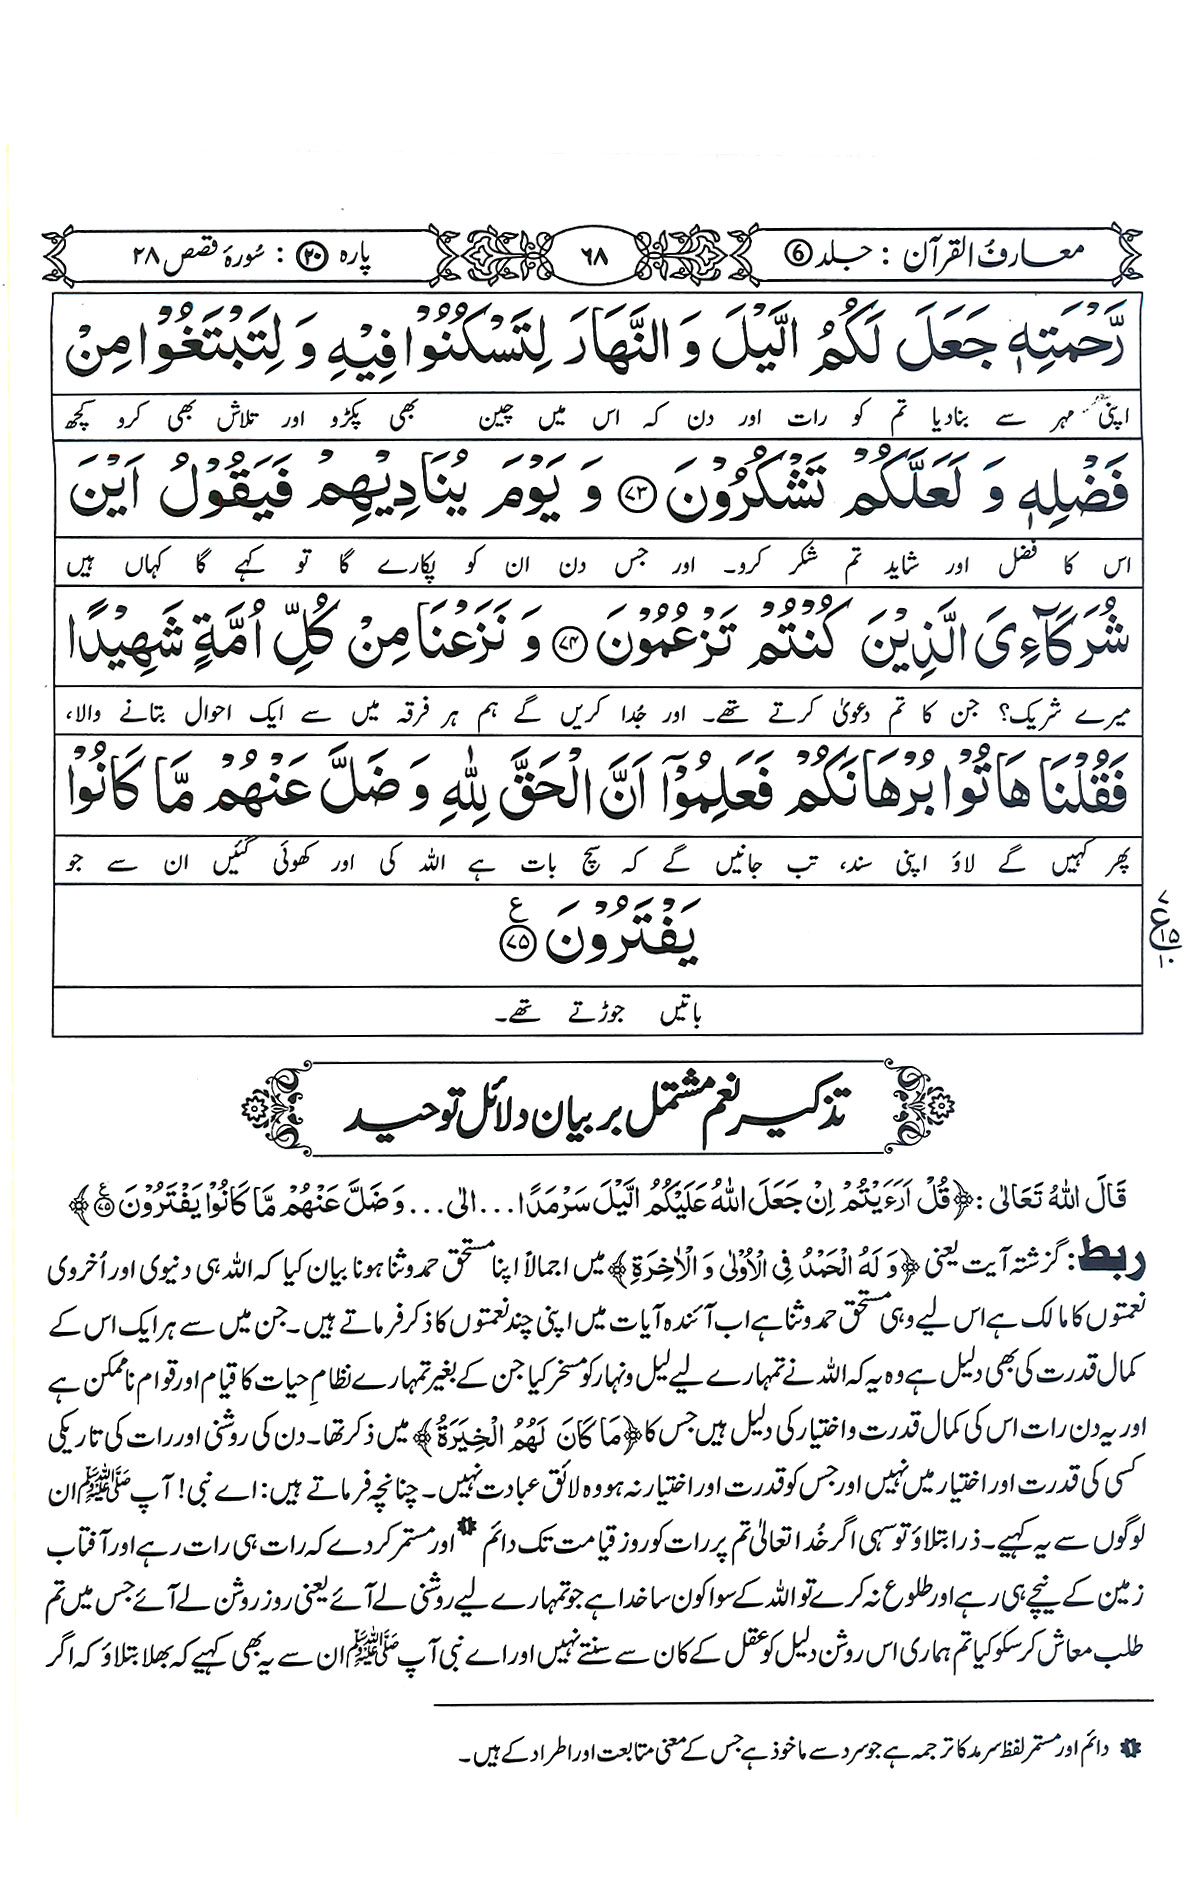 معارف القرآن : جلد 6
٦٨
پارہ ۲۰ : سُورۂ قصص ۲۸
رَّحْمَتِهٖ جَعَلَ لَكُمُ الَّيْلَ وَ النَّهَارَ لِتَسْكُنُوْا فِيْهِ وَ لِتَبْتَغُوْا مِنْ
اپنی مہر سے بنادیا تم کو رات اور دن کہ اس میں چین بھی پکڑو اور تلاش بھی کرو کچھ
فَضْلِهٖ وَ لَعَلَّكُمْ تَشْكُرُوْنَ ۷۳ وَ يَوْمَ يُنَادِيْهِمْ فَيَقُوْلُ اَيْنَ
اس کا فضل اور شاید تم شکر کرو۔ اور جس دن ان کو پکارے گا تو کہے گا کہاں ہیں
شُرَكَآءِيَ الَّذِيْنَ كُنْتُمْ تَزْعُمُوْنَ ۷۴ وَ نَزَعْنَا مِنْ كُلِّ اُمَّةٍ شَهِيْدًا
میرے شریک؟ جن کا تم دعویٰ کرتے تھے۔ اور جُدا کریں گے ہم ہر فرقہ میں سے ایک احوال بتانے والا،
فَقُلْنَا هَاتُوْا بُرْهَانَكُمْ فَعَلِمُوْٓا اَنَّ الْحَقَّ لِلّٰهِ وَ ضَلَّ عَنْهُمْ مَّا كَانُوْا
پھر کہیں گے لاؤ اپنی سند، تب جانیں گے کہ سچ بات ہے اللہ کی اور کھوئی گئیں ان سے جو
يَفْتَرُوْنَ ۷۵ ع
۷ ع ۱۵ ۱۰
باتیں جوڑتے تھے۔
تذکیر نعم مشتمل بر بیان دلائل توحید
قَالَ اللهُ تَعَالٰى : ﴿قُلْ اَرَءَيْتُمْ اِنْ جَعَلَ اللهُ عَلَيْكُمُ الَّيْلَ سَرْمَدًا...الی...وَ ضَلَّ عَنْهُمْ مَّا كَانُوْا يَفْتَرُوْنَ ۷۵﴾
ربط : گزشتہ آیت یعنی ﴿وَ لَهُ الْحَمْدُ فِي الْاُوْلٰى وَ الْاٰخِرَةِ﴾ میں اجمالاً اپنا مستحق حمد وثنا ہونا بیان کیا کہ اللہ ہی دنیوی اور اُخروی
نعمتوں کا مالک ہے اس لیے وہی مستحق حمد وثنا ہے اب آئندہ آیات میں اپنی چند نعمتوں کا ذکر فرماتے ہیں۔ جن میں سے ہر ایک اس کے
کمال قدرت کی بھی دلیل ہے وہ یہ کہ اللہ نے تمہارے لیے لیل ونہار کو مسخر کیا جن کے بغیر تمہارے نظامِ حیات کا قیام اور قوام ناممکن ہے
اور یہ دن رات اس کی کمال قدرت واختیار کی دلیل ہیں جس کا ﴿مَا كَانَ لَهُمُ الْخِيَرَةُ﴾ میں ذکر تھا۔ دن کی روشنی اور رات کی تاریکی
کسی کی قدرت اور اختیار میں نہیں اور جس کو قدرت اور اختیار نہ ہو وہ لائق عبادت نہیں۔ چنانچہ فرماتے ہیں: اے نبی! آپ ﷺ ان
لوگوں سے یہ کہیے۔ ذرا بتلاؤ تو سہی اگر خُدا تعالیٰ تم پر رات کو روز قیامت تک دائم ۱ اور مستمر کر دے کہ رات ہی رات رہے اور آفتاب
زمین کے نیچے ہی رہے اور طلوع نہ کرے تو اللہ کے سوا کون سا خدا ہے جو تمہارے لیے روشنی لے آئے یعنی روز روشن لے آئے جس میں تم
طلب معاش کر سکو کیا تم ہماری اس روشن دلیل کو عقل کے کان سے سنتے نہیں اور اے نبی آپ ﷺ ان سے یہ بھی کہیے کہ بھلا بتلاؤ کہ اگر
۱ دائم اور مستمر لفظ سرمد کا ترجمہ ہے جو سرد سے ماخوذ ہے جس کے معنی متابعت اور اطراد کے ہیں۔